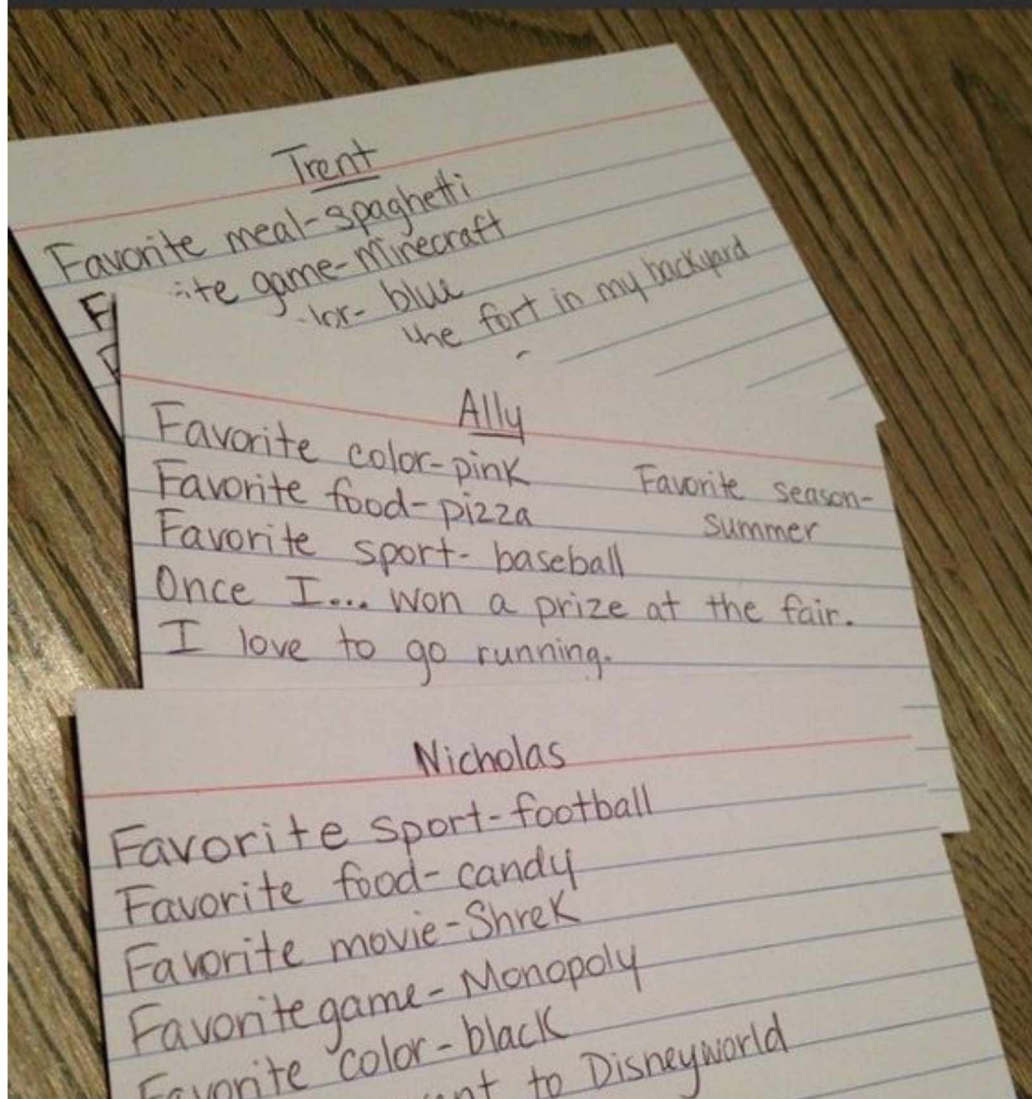 Trent
Favorite meal-spaghetti
game-Minecraft
blue
the fort in my backyard
Ally
Favorite color-pink
Favorite food-pizza
Favorite sport- baseball
Once I... won a prize at the fair.
I love to go running.
Favorite season-
summer
Nicholas
Favorite sport-football
Favorite food-candy
Favorite movie-Shrek
Favorite game-Monopoly
Favorite color-black
to Disneyworld